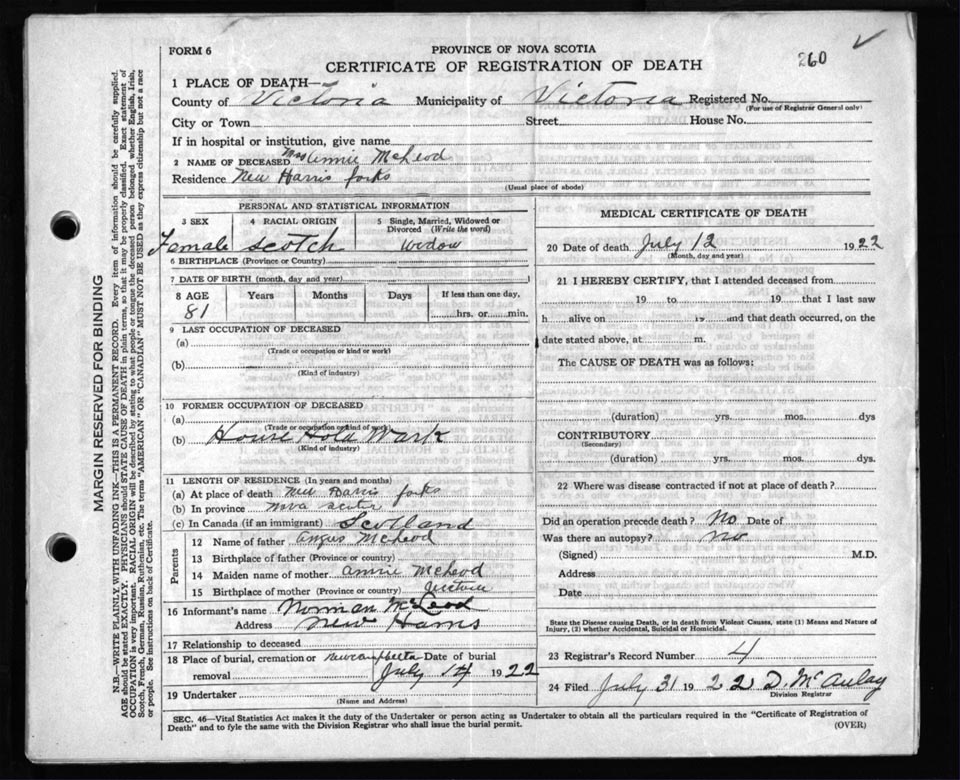 FORM 6
PROVINCE OF NOVA SCOTIA
CERTIFICATE OF REGISTRATION OF DEATH
260
1 PLACE OF DEATH—
County of Victoria Municipality of Victoria Registered No.
(For use of Registrar General only)
City or Town Street House No.
If in hospital or institution, give name
2 NAME OF DECEASED Mrs Annie McLeod
Residence New Harris forks
(Usual place of abode)
PERSONAL AND STATISTICAL INFORMATION
3 SEX 4 RACIAL ORIGIN 5 Single, Married, Widowed or Divorced (Write the word)
Female Scotch Widow
6 BIRTHPLACE (Province or Country)
7 DATE OF BIRTH (month, day and year)
8 AGE Years Months Days If less than one day,
81 hrs. or min.
9 LAST OCCUPATION OF DECEASED
(a)
(Trade or occupation or kind or work)
(b)
(Kind of industry)
10 FORMER OCCUPATION OF DECEASED
(a)
(Trade or occupation or kind of work)
(b) House Hold Wark
(Kind of industry)
11 LENGTH OF RESIDENCE (In years and months)
(a) At place of death New Harris forks
(b) In province nova scotia
(c) In Canada (if an immigrant) Scotland
Parents
12 Name of father Angus McLeod
13 Birthplace of father (Province or country)
14 Maiden name of mother Annie McLeod
15 Birthplace of mother (Province or country)
16 Informant's name Norman McLeod
Address New Harris
17 Relationship to deceased
18 Place of burial, cremation or Date of burial
removal July 14 1922
19 Undertaker
(Name and Address)
MEDICAL CERTIFICATE OF DEATH
20 Date of death July 12 1922
(Month, day and year)
21 I HEREBY CERTIFY, that I attended deceased from
19 to 19 that I last saw
h alive on 19 and that death occurred, on the
date stated above, at m.
The CAUSE OF DEATH was as follows:
(duration) yrs. mos. dys
CONTRIBUTORY
(Secondary)
(duration) yrs. mos. dys.
22 Where was disease contracted if not at place of death?
Did an operation precede death? No Date of
Was there an autopsy? no
(Signed) M.D.
Address
Date
State the Disease causing Death, or in death from Violent Causes, state (1) Means and Nature of
Injury, (2) whether Accidental, Suicidal or Homicidal.
23 Registrar's Record Number 4
24 Filed July 31 1922 D. McAulay
Division Registrar
SEC. 46—Vital Statistics Act makes it the duty of the Undertaker or person acting as Undertaker to obtain all the particulars required in the "Certificate of Registration of
Death" and to fyle the same with the Division Registrar who shall issue the burial permit.
(OVER)
MARGIN RESERVED FOR BINDING
N.B.—WRITE PLAINLY, WITH UNFADING INK—THIS IS A PERMANENT RECORD. Every item of information should be carefully supplied.
AGE should be stated EXACTLY. PHYSICIANS should STATE CAUSE OF DEATH in plain terms, so that it may be properly classified. Exact statement of
OCCUPATION is very important. RACIAL ORIGIN will be described by stating to what people or tongue the deceased person belonged whether English, Irish,
Scotch, French, German, Russian, Ruthenian, etc. The terms "AMERICAN" OR "CANADIAN" MUST NOT BE USED as they express citizenship but not a race
or people. See instructions on back of Certificate.